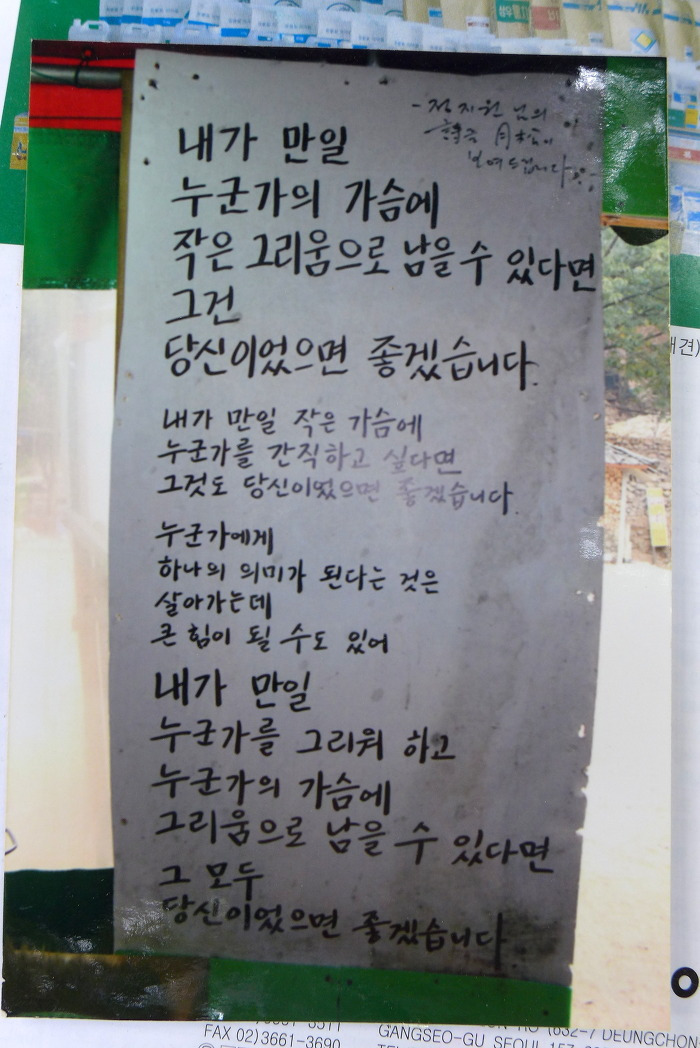 - 정지원 님의
詩를 月松이
보여드립니다.
내가 만일
누군가의 가슴에
작은 그리움으로 남을 수 있다면
그건
당신이었으면 좋겠습니다.
내가 만일 작은 가슴에
누군가를 간직하고 싶다면
그것도 당신이었으면 좋겠습니다.
누군가에게
하나의 의미가 된다는 것은
살아가는데
큰 힘이 될 수도 있어
내가 만일
누군가를 그리워 하고
누군가의 가슴에
그리움으로 남을 수 있다면
그 모두
당신이었으면 좋겠습니다
FAX 02)3661-3690
GANGSEO-GU SEOUL